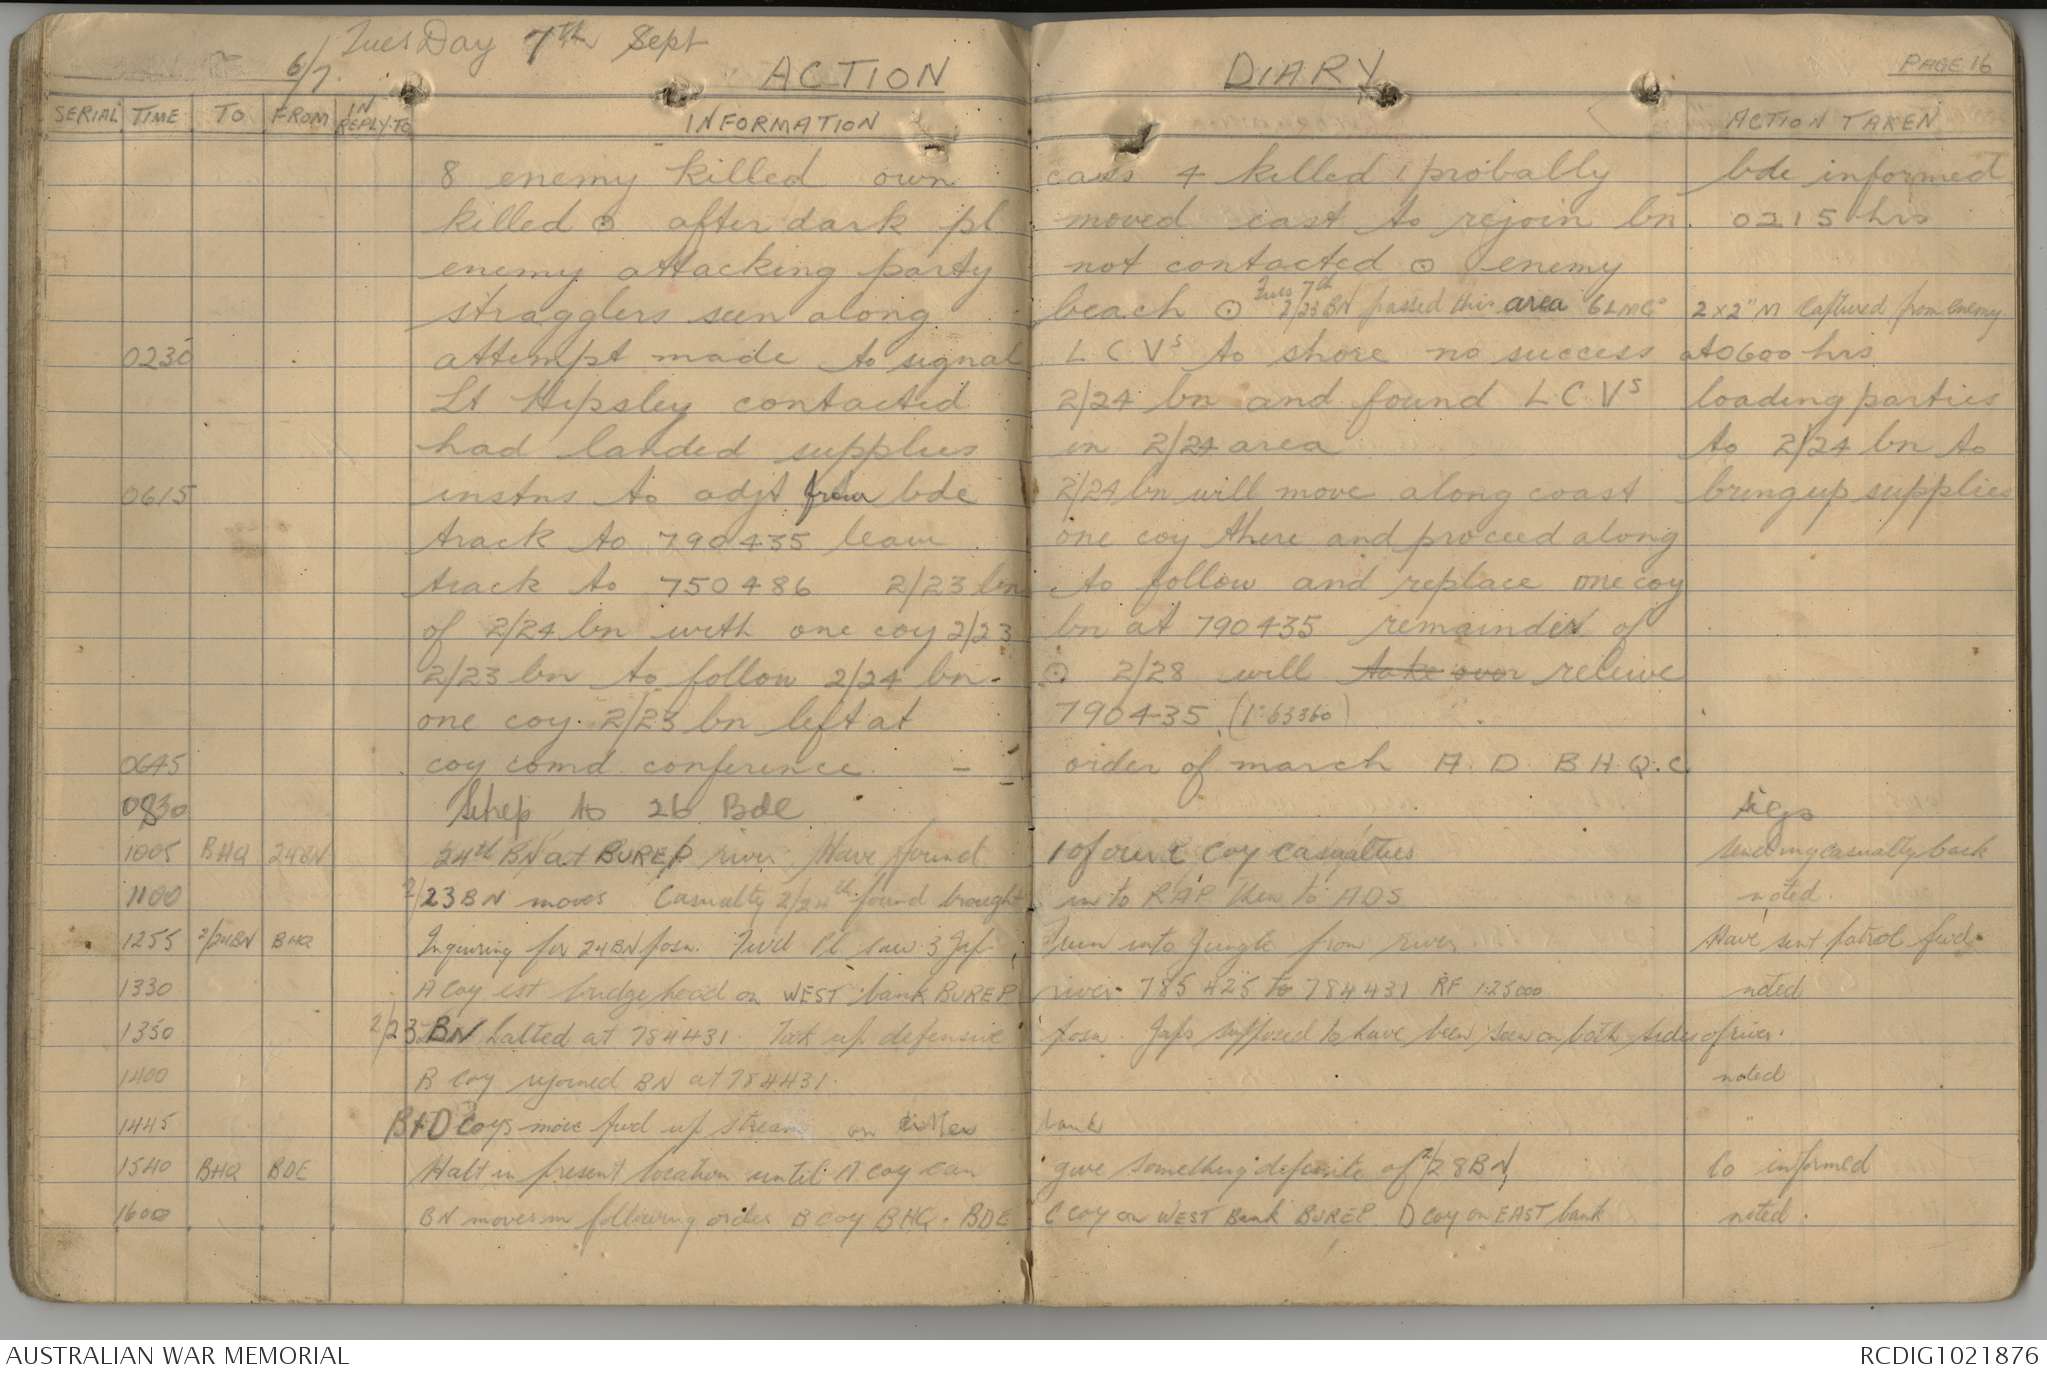 6/7. Tues Day 7th Sept
ACTION DIARY PAGE 16
SERIAL TIME TO FROM IN REPLY TO INFORMATION ACTION TAKEN
8 enemy killed own cass 4 killed 1 probably bde informed
killed ⊙ after dark pl moved east to rejoin bn. 0215 hrs
enemy attacking party not contacted ⊙ enemy
Tues 7th
stragglers seen along beach ⊙ 2/23 BN passed this area 6 LMGs 2 x 2" M Captured from enemy
0230 attempt made to signal L C Vs to shore no success at 0600 hrs
Lt Hipsley contacted 2/24 bn and found L C Vs loading parties
had landed supplies in 2/24 area to 2/24 bn to
0615 instns to adjt from bde 2/24 bn will move along coast bring up supplies
track to 790435 leave one coy there and proceed along
track to 750486 2/23 bn to follow and replace one coy
of 2/24 bn with one coy 2/23 bn at 790435 remainder of
2/23 bn to follow 2/24 bn. ⊙ 2/28 will take over relieve
one coy 2/23 bn left at 790435 (1:63360)
0645 coy comd conference - order of march A. D. B H.Q. C
0830 Sitrep to 26 Bde sigs
1005 BHQ 24BN 24th BN at BUREP river. Have found 1 of our C Coy casualties sending casualty back
1100 2/23 BN moves Casualty 2/24th found brought in to RAP then to ADS noted.
1255 2/24BN BHQ Inquiring for 24BN posn. Fwd Pl saw 3 Jap from into Jungle from river. Have sent patrol fwd.
1330 A Coy est bridgehead on WEST bank BUREP river 785425 to 784431 RF 1:25000 noted
1350 2/23 BN halted at 784431. Took up defensive posn Japs supposed to have been seen on both sides of river.
1400 B Coy rejoined BN at 784431. noted
1445 B+D Coys move fwd up stream on either bank "
1540 BHQ BDE Halt in present location until A Coy can give something definite of 2/28BN, Co informed
1600 BN moves in following order B Coy BHQ. BDE C Coy on WEST Bank BUREP D Coy on EAST bank noted.
AUSTRALIAN WAR MEMORIAL RCDIG1021876